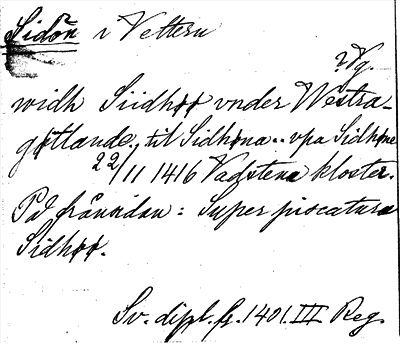 Sidön i Vettern
? Vg.
widh Siidhøø vnder Westra-
gøtlande., til Sidhøna.. vpa Sidhøne
22/11 1416 Vadstena kloster.
På frånsidan: Super piscatura
Sidhøø.
Sv. dipl. fr. 1401. III Reg.